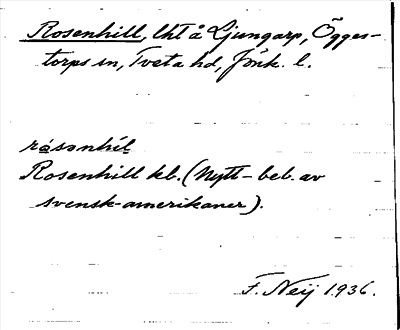 Rosenhill, lht å Ljungarp, Ögges-
torps sn, Tveta hd, Jönk. l.
rósənhíl
Rosenhill kb. (Nytt – beb. av
svensk-amerikaner).
F. Neij 1936.